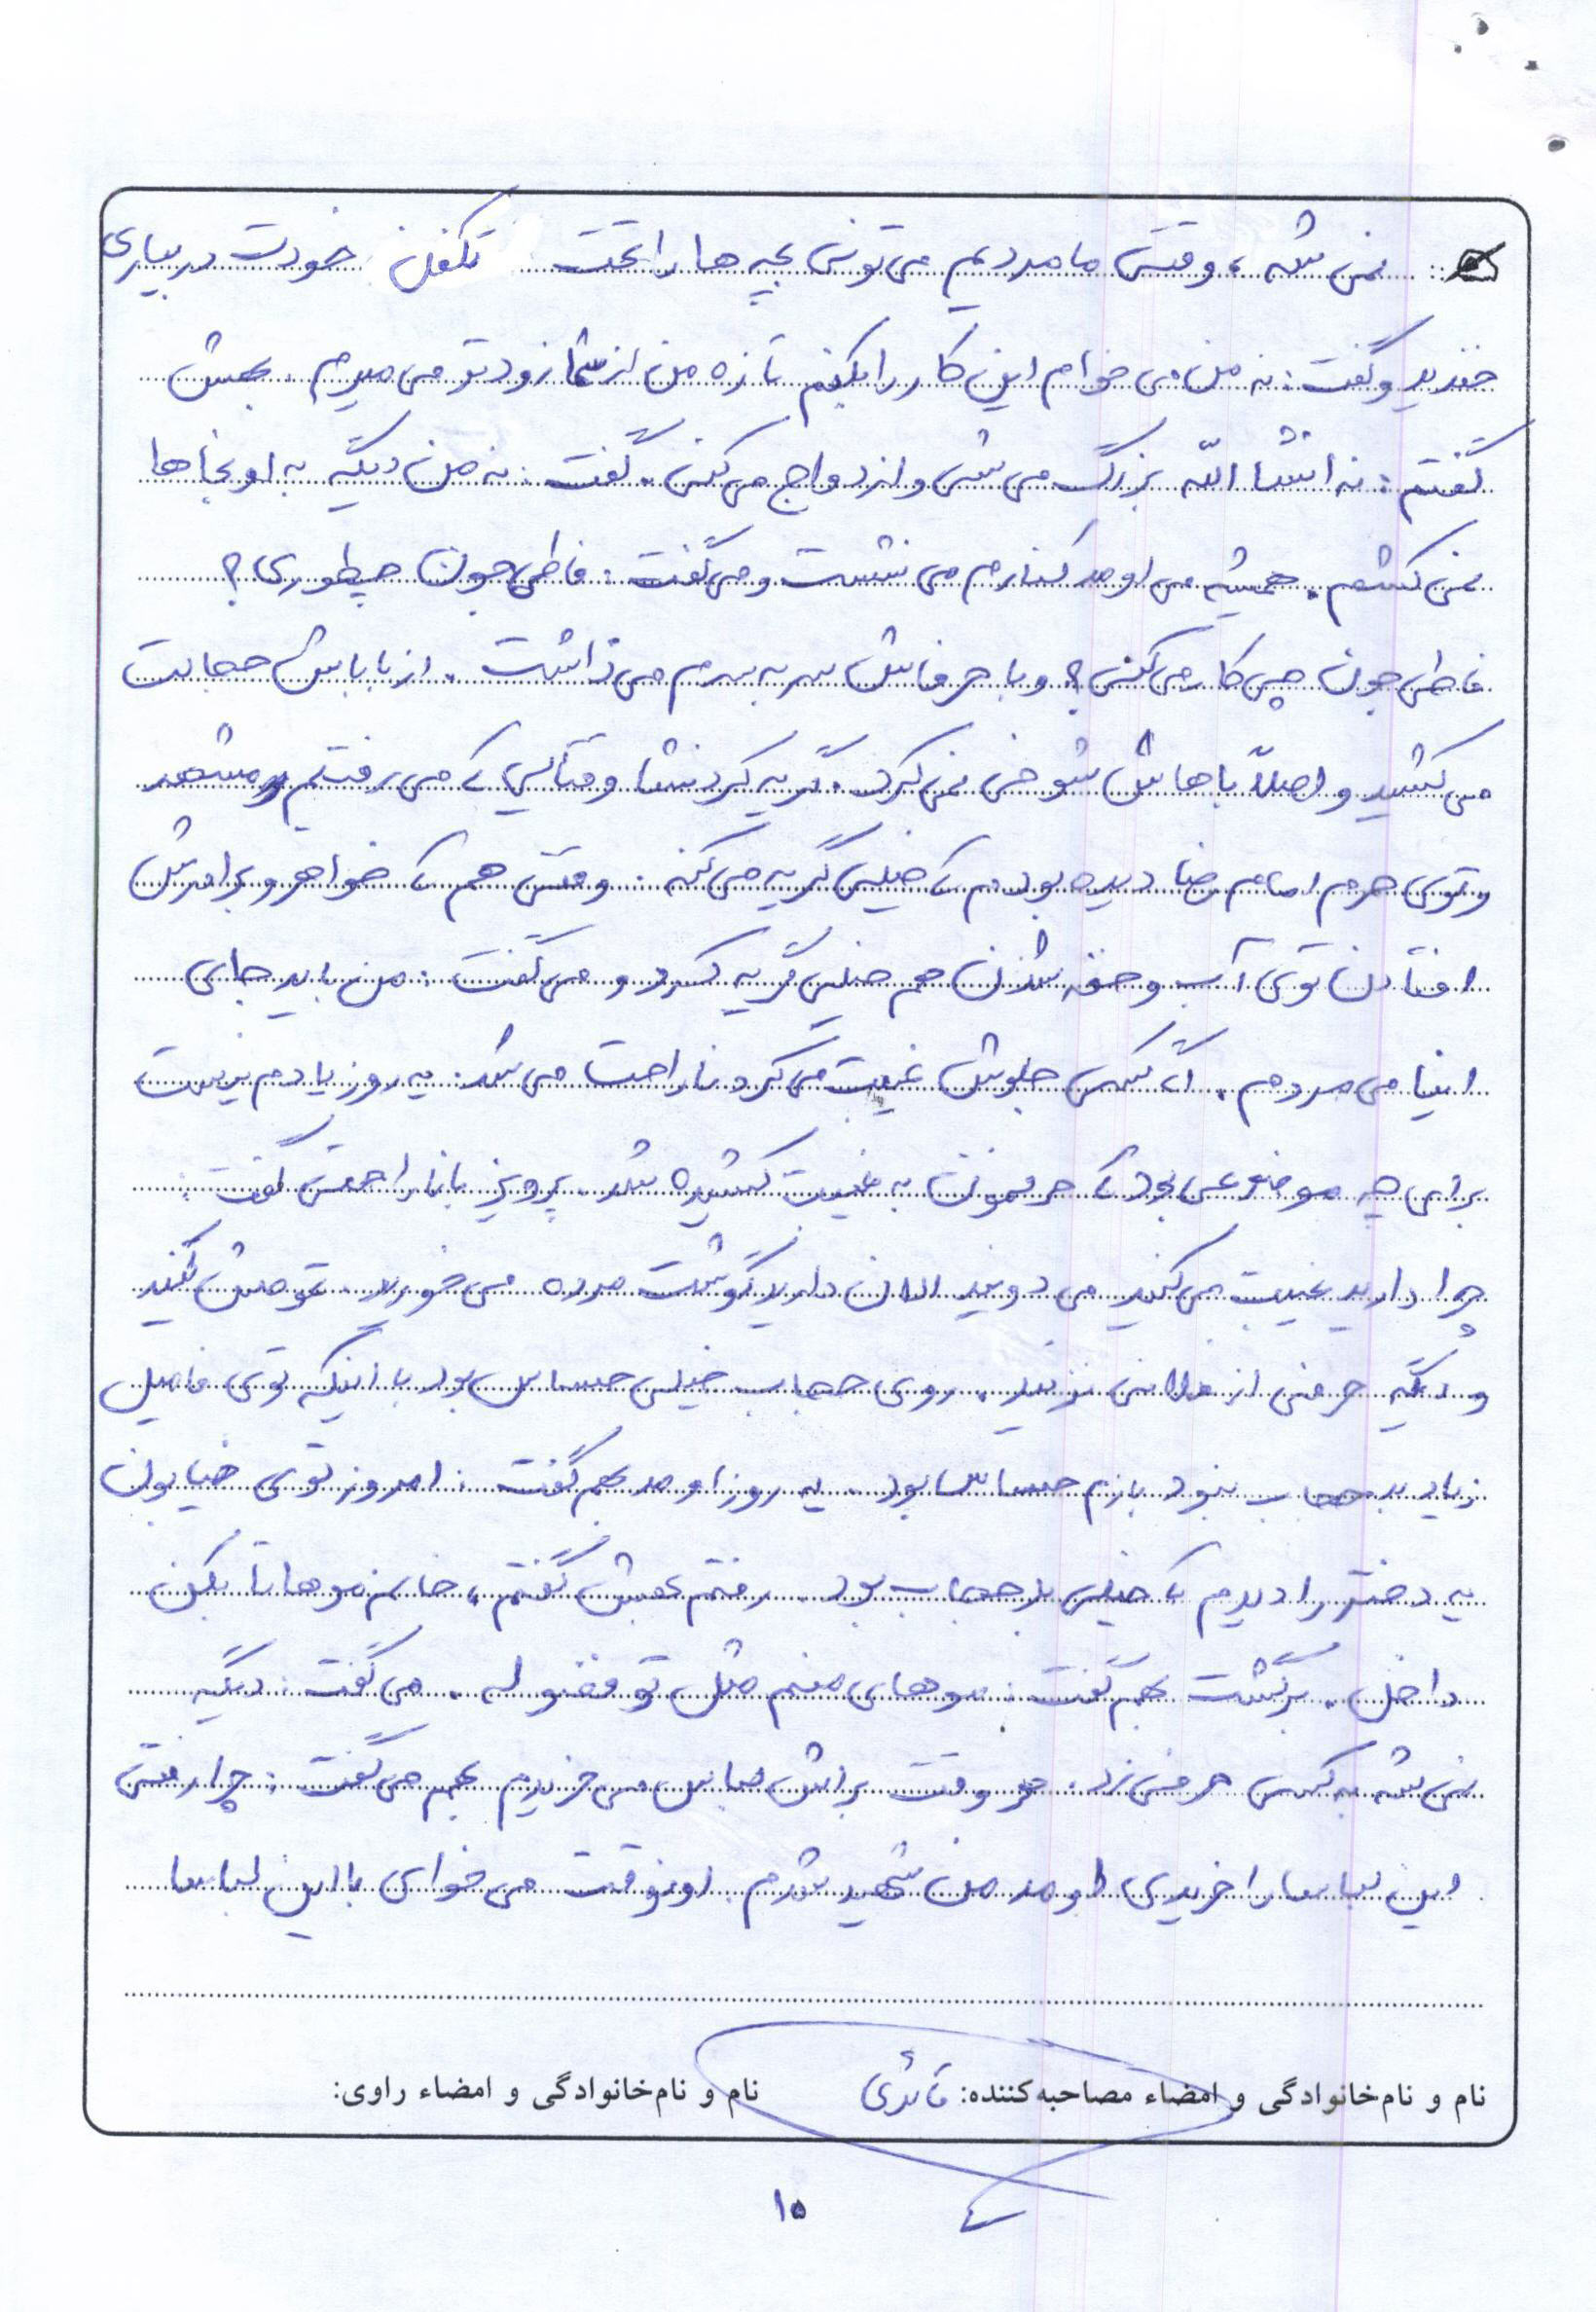 نمی شه، وقتی ما مردیم می تونی بچه ها را تحت تکفل خودت دربیاری
خندید و گفت: نه من می خوام این کار را بکنم تازه من از شما زودتر می میرم. بهش
گفتم: نه انشا الله بزرگ می شی و ازدواج می کنی. گفت: نه من دیگه به اونجاها
نمی کشم. همیشه می اومد کنارم می نشست و می گفت: فاطی جون چطوری؟
فاطی جون چی کار می کنی؟ و با حرفاش سر به سرم می ذاشت. از باباش خجالت
می کشید و اصلاً باهاش شوخی نمی کرد. گریه کردنشا وقتایی که می رفتیم مشهد
و توی حرم امام رضا دیده بودم که خیلی گریه می کنه. وقتی هم که خواهر و برادرش
افتادن توی آب و خفه شدن هم خیلی گریه کرد و می گفت: من باید جای
اینا می مردم. اگه کسی جلوش غیبت می کرد ناراحت می شد. یه روز یادم نیست
برای چه موضوعی بود که حرفمون به غیبت کشیده شد. پرویز با ناراحتی گفت:
چرا دارید غیبت می کنید می دونید الان دارید گوشت مرده می خورید. تمومش کنید
و دیگه حرفی از فلانی نزنید. روی حجاب خیلی حساس بود با اینکه توی فامیل
زیاد بد حجاب نبود بازم حساس بود. یه روز اومد بهم گفت: امروز توی خیابون
یه دختر را دیدم که خیلی بد حجاب بود. رفتم بهش گفتم، خانم موهاتا بکن
داخل. برگشت بهم گفت: موهای منم مثل تو فضوله. می گفت: دیگه
نمی شه به کسی حرفی زد. هر وقت براش لباس می خریدم بهم می گفت: چرا رفتی
این لباسا را خریدی اومد من شهید شدم. اونوقت می خوای با این لباسا
نام و نام‌خانوادگی و امضاء مصاحبه‌کننده: قائدی نام و نام‌خانوادگی و امضاء راوی:
۱۵